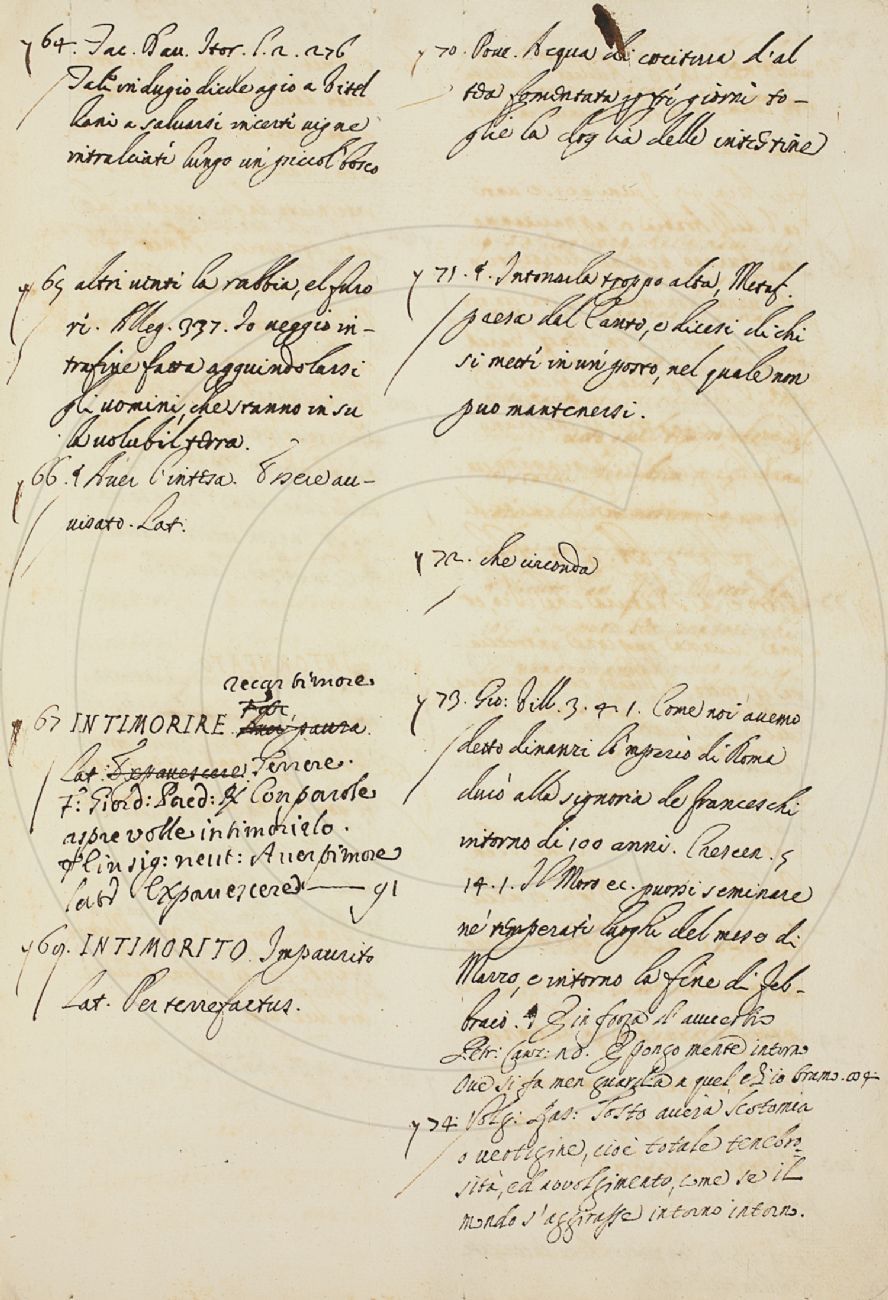 64. Tac. Dav. Stor. l. 2. 276
Tal'indugio diede agio a Vitel
liani a salvarsi in certi vigne
intralciati lungo un piccol bosco
65 altri venti la rabbia, el furo
ri. Alleg. 337. Io veggio in-
trafine fatta agguindolarsi
gli uomini, che stanno in su
la volubil terra.
66. ¶ Aver l'intesa. Essere av-
visato. Lat.
recar timore.
Far
67 INTIMORIRE Aver paura.
Lat. Expavescere. Terrere.
F: Giord: Pred: R Con parole
aspre volle intimorirlo.
¶ E in sig: neut: Aver timore
lat Expavescere 91
69. INTIMORITO. Impaurito
Lat. Perterrefactus.
70. Pov. Acqua di cocitura d'al
tea fomentata giorni to-
glie la doglia delle intestine
71. ¶. Intonarla troppo alta, Metaf.
presa dal Canto, e dicesi di chi
si metti in un posto, nel quale non
puo mantenersi.
72. che circonda
73. Gio: Vill. 3. 4. 1. Come noi avemo
detto dinanzi lo 'mperio di Roma
durò alla signoria de franceschi
intorno di 100 anni. Crescen. 5
14. 1. Il Moro ec. puossi seminare
ne' temperati luoghi del mese di
Marzo, e intorno la fine di Feb-
braio. ¶ E in forza d'avverbio
Petr: Canz: no. E pongo mente intorno
Ove si fa men guardia a quel ch'io bramo.
74. Volg: Ras: Tosto averà Scotomia
o vertigine, cioè totale tenebro-
sità, ed avvolgimento, come se il
mondo s'aggirasse intorno intorno.